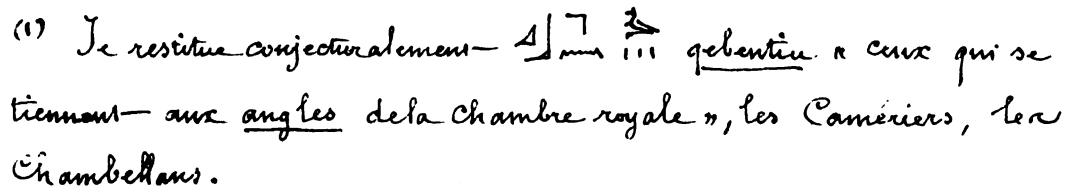 (1) Je restitue conjecturalement qebentiu « ceux qui se
tiennent aux angles de la chambre royale », les Camériers, les
Chambellans.